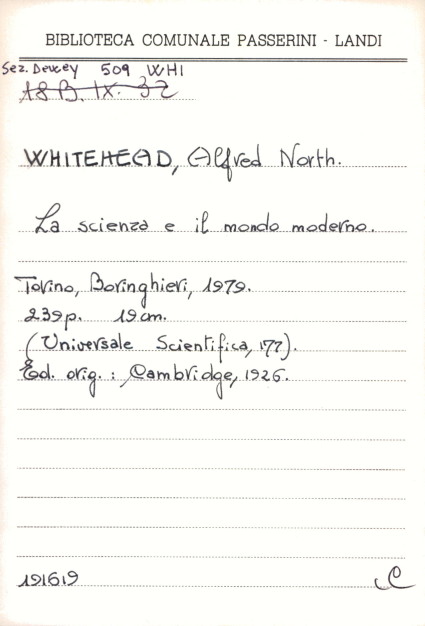 BIBLIOTECA COMUNALE PASSERINI - LANDI
Sez. Dewey 509 WHI
18 B. IX. 32
WHITEHEAD, Alfred North.
La scienza e il mondo moderno.
Torino, Boringhieri, 1979.
239p. 19cm.
(Universale Scientifica, 177).
Ed. orig. : Cambridge, 1926.
191619 C